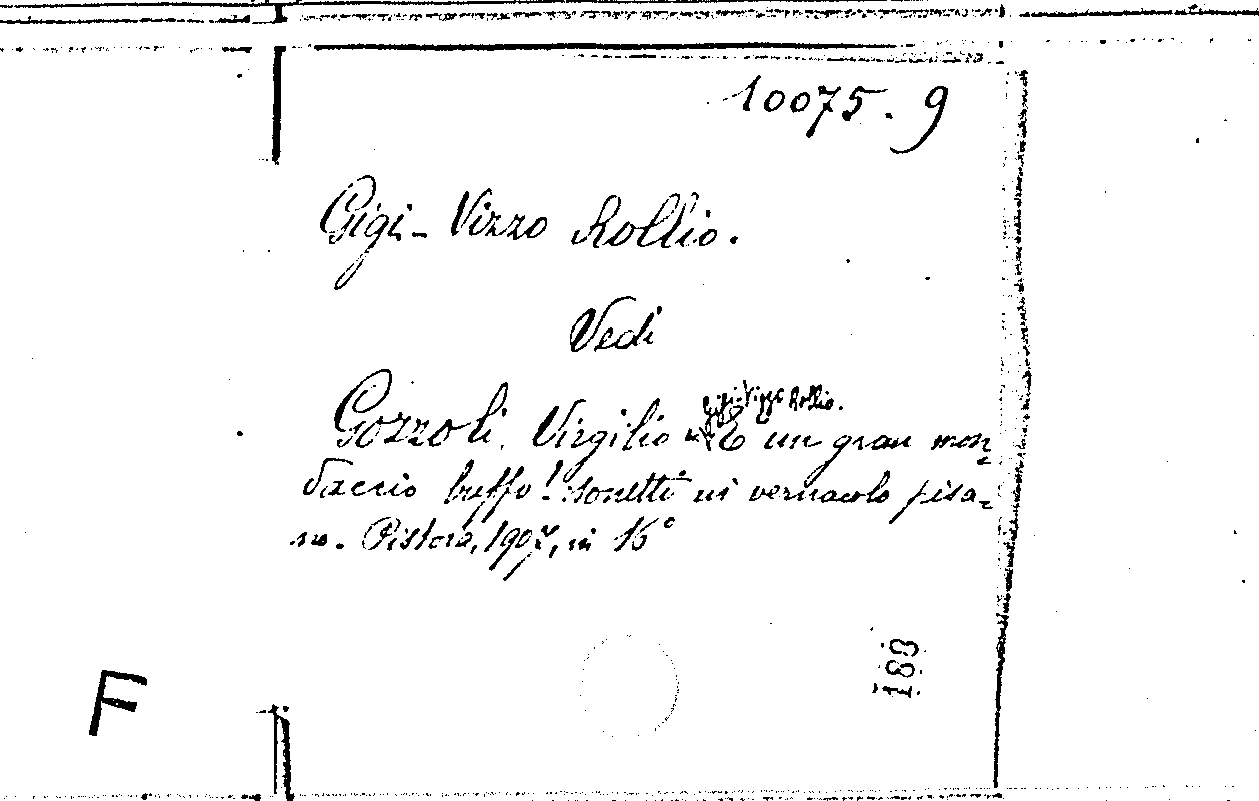 10075.9
Gigi-Vizzo Rollio.
Vedi
Gigi-Vizzo Rollio.
Gozzoli. Virgilio È un gran mon=
daccio buffo! Sonetti in vernacolo pisa=
no. Pistoia, 1907, in 16°
188
F